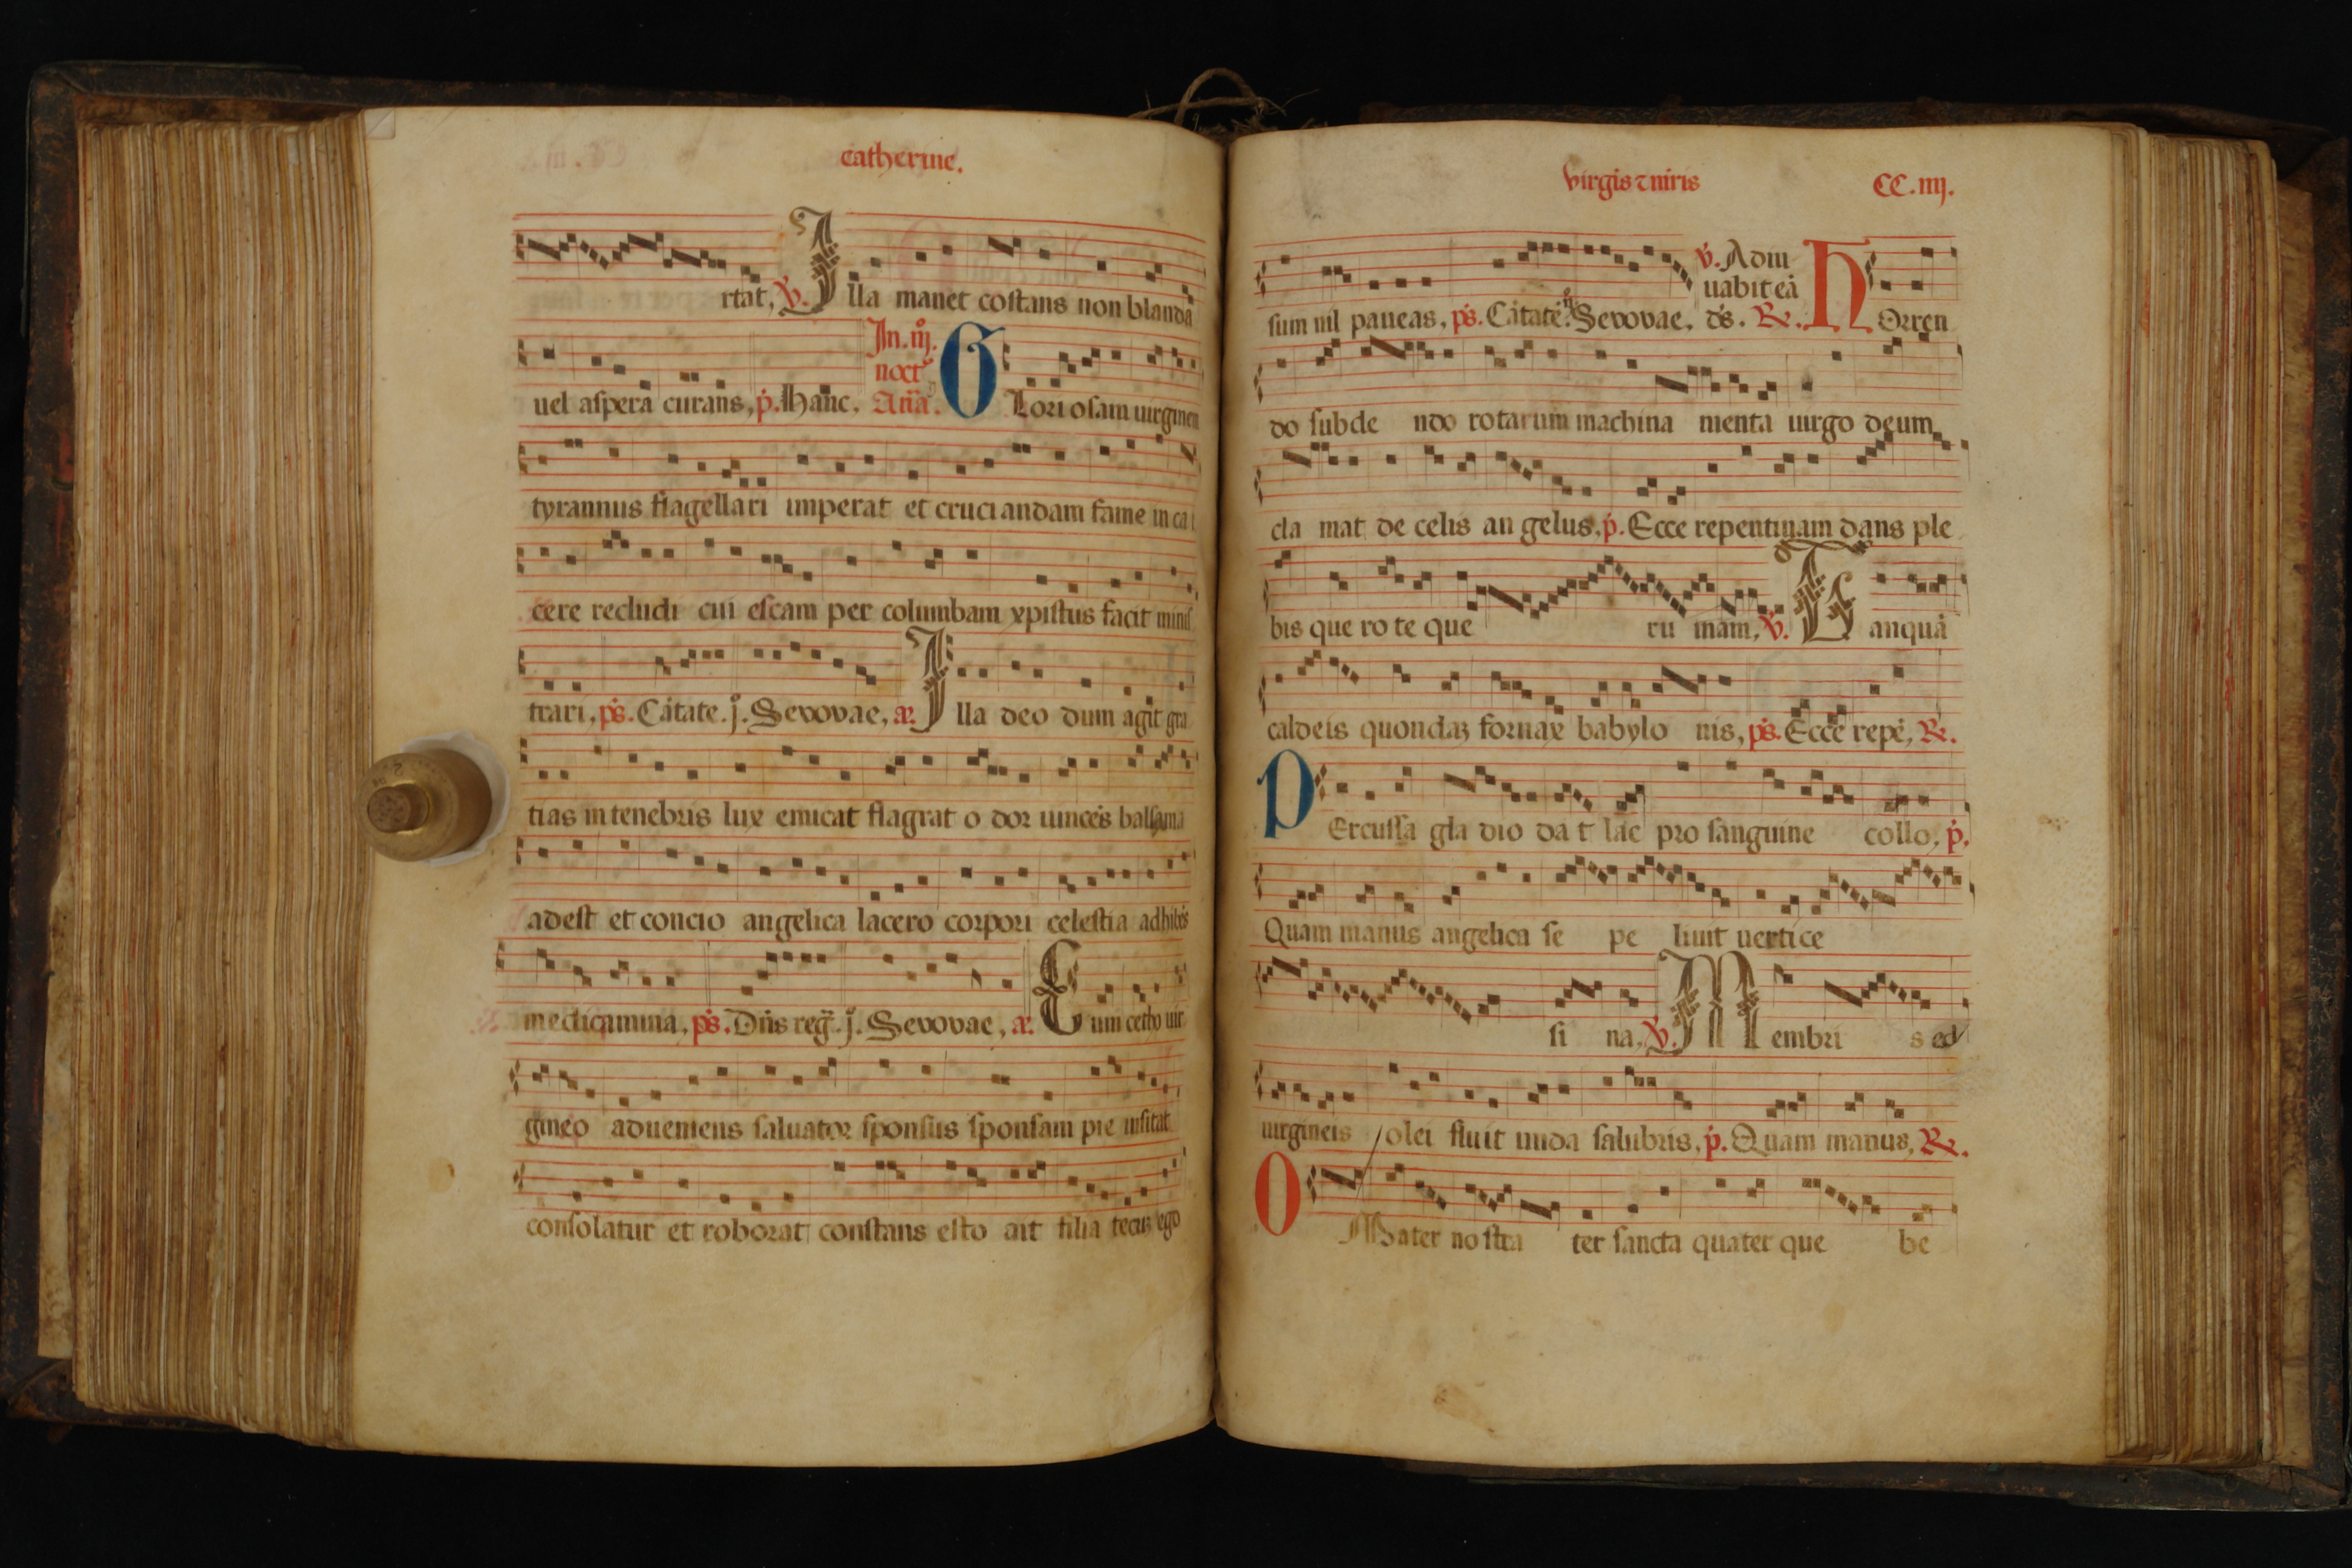 catherine.
rtat, v. Illa manet costans non blanda
uel aspera curans, p. hanc. In. iij. noct Ana. Gloriosam uirginem
tyrannus flagellari imperat et cruciandam fame in car
cere recludi cui escam per columbam xpistus facit minis
trari, ps. Cātate. j. Seuouae, a. Illa deo dum agit gra
tias in tenebris lux emicat flagrat odor uincēs balsama
adest et concio angelica lacero corpori celestia adhibēs
medicamina, ps. Dn̄s reḡ. j. Seuouae, a. Cum cetho uir
gineo adueniens saluator sponsus sponsam pie uisitat
consolatur et roborat constans esto ait filia tecuʒ ego
virgis ⁊ niris CC. iiij.
sum nil paueas, ps. Cātate. Seuouae, ds. v. Adiu uabit eā R. Horren
do subde ndo rotarum machina menta uirgo deum
cla mat de celis angelus, p. Ecce repentinam dans ple
bis que rote que ru inam, v. Tanquā
caldeis quondaʒ fornax babylo nis, ps. Ecce repē, R.
Percussa gladio da t lac pro sanguine collo, p.
Quam manus angelica se pe liuit uertice
si na, v. Membri s ed
uirgineis olei fluit unda salubris, p. Quam manus, R.
O Mater nostra ter sancta quater que be